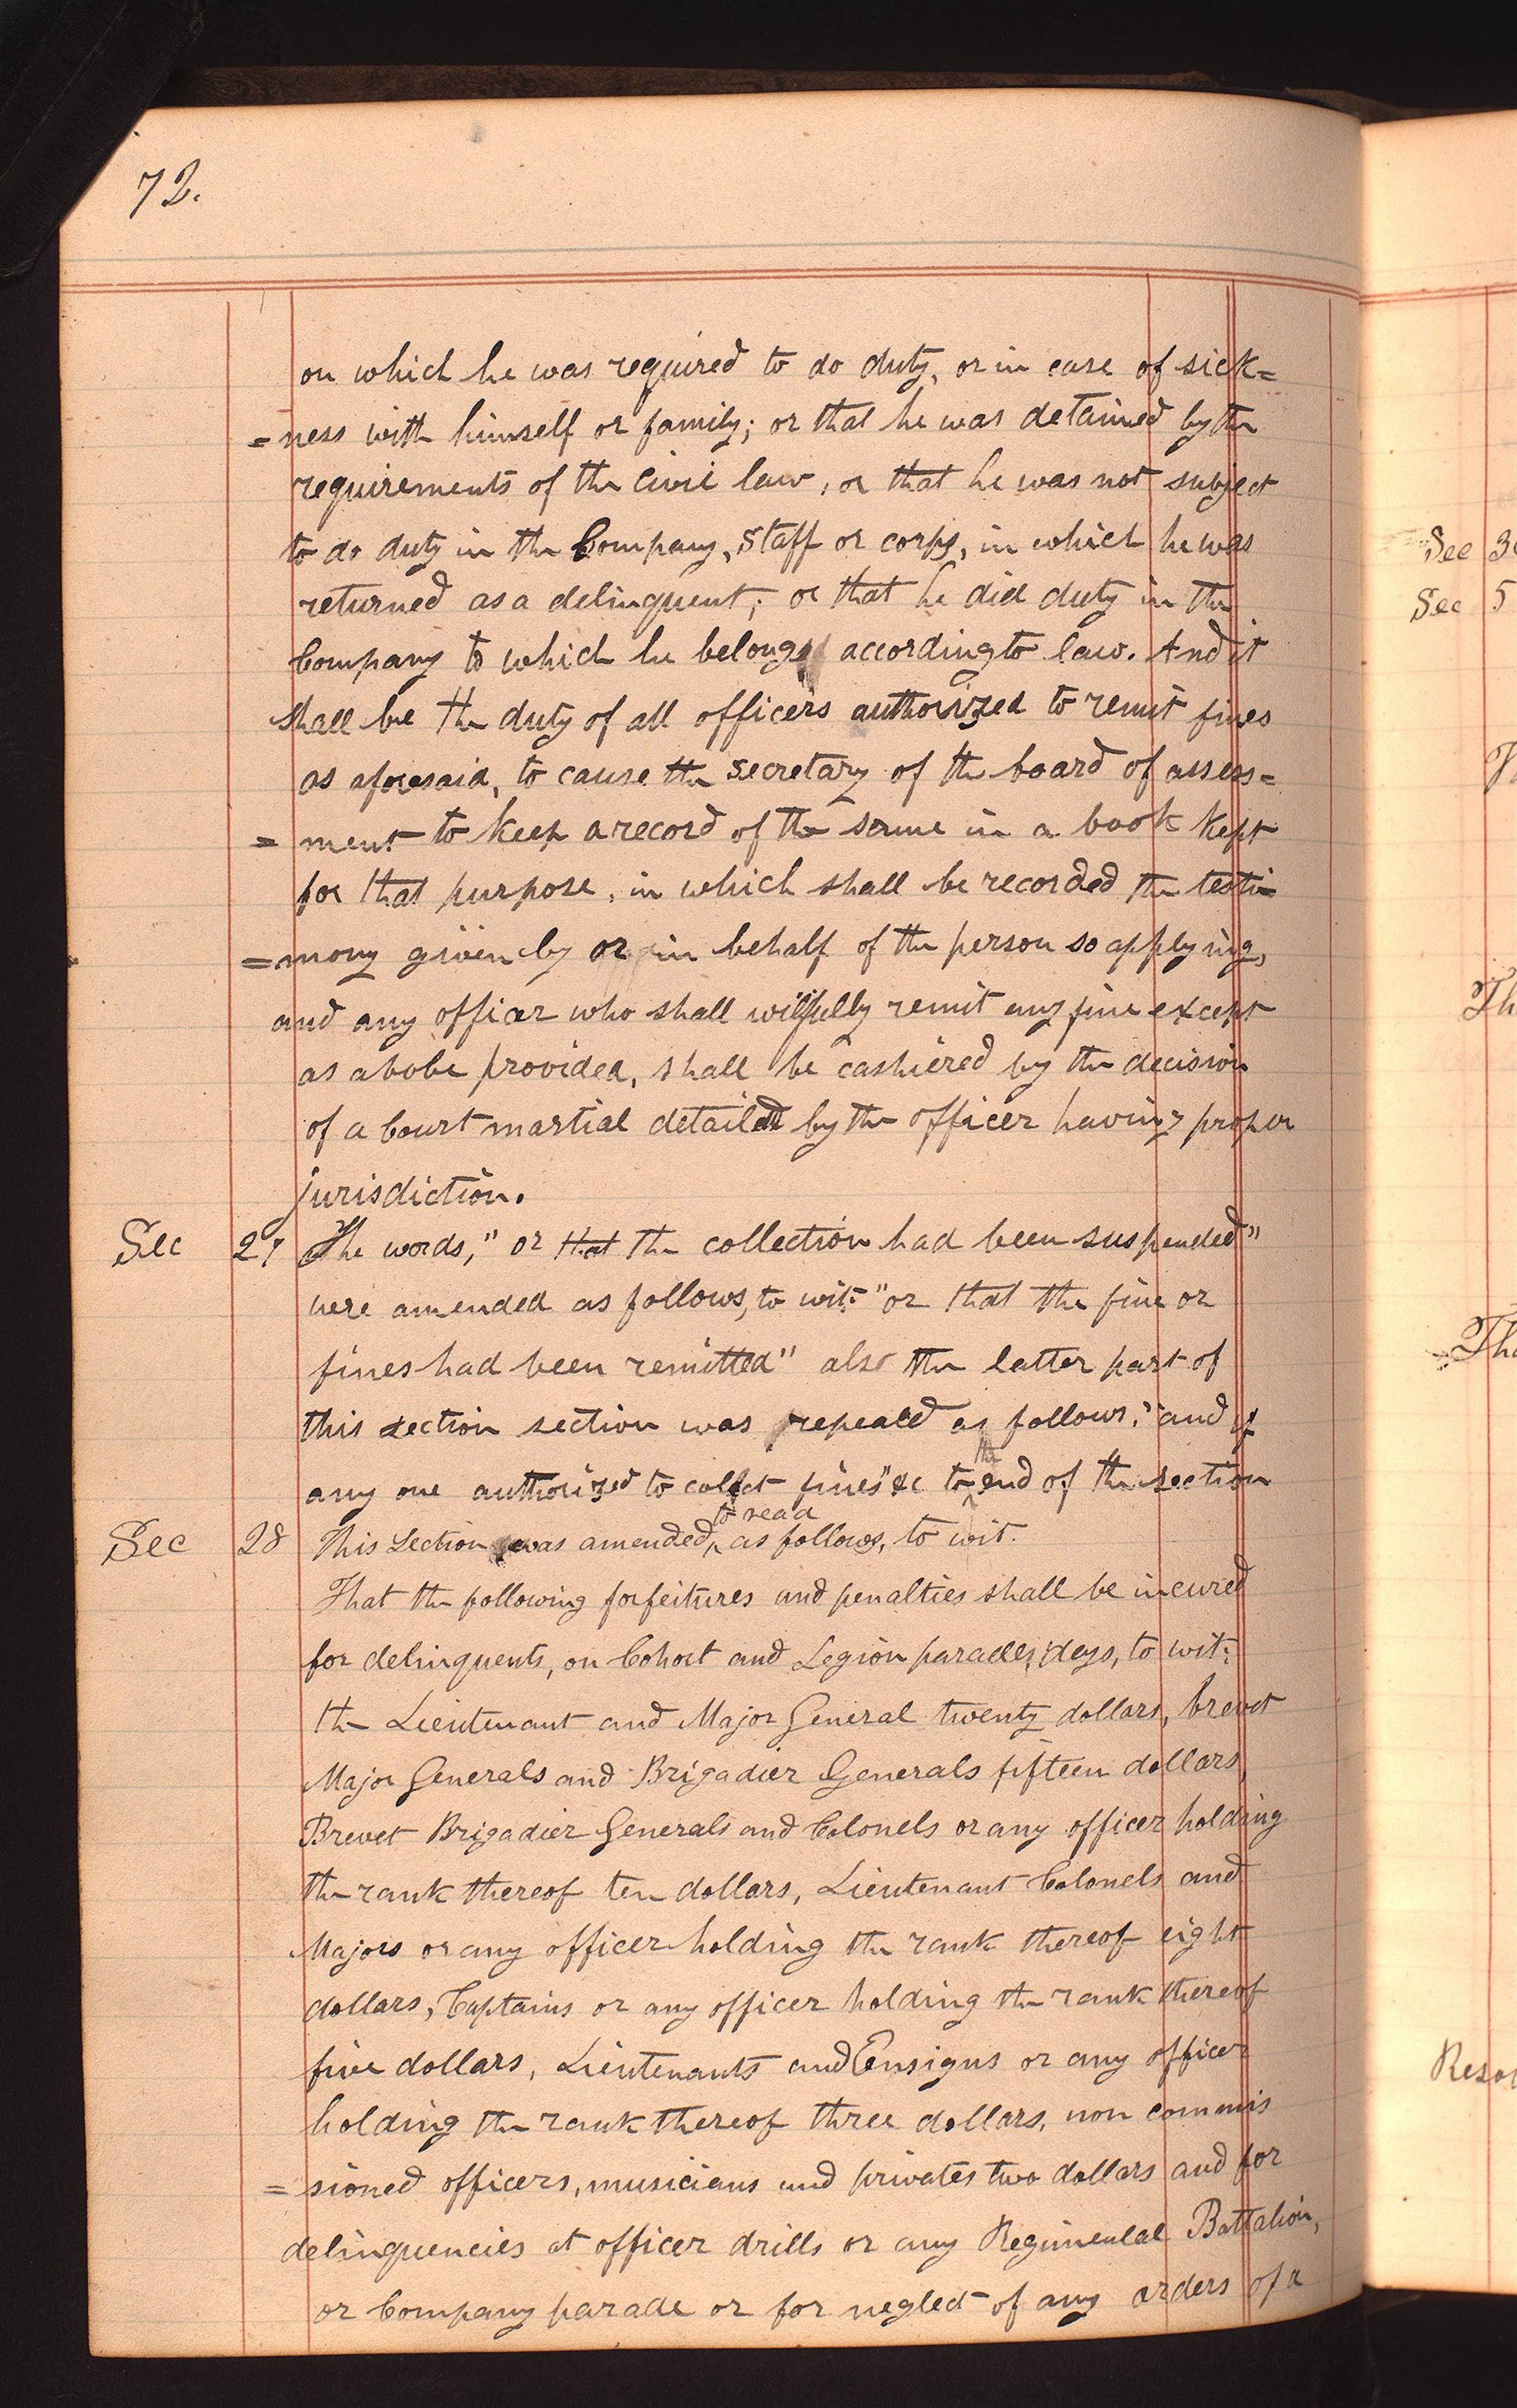 72.
on which he was required to do duty, or in case of sick=
=ness with himself or family; or that he was detained by the
requirements of the civil law, or that he was not subject
to do duty in the Company, staff or corps, in which he was
returned as a delinquent; or that he did duty in the
Company to which he belongs according to law. And it
shall be the duty of all officers authorized to remit fines
as aforesaid, to cause the secretary of the board of assess=
= ment to keep a record of the same in a book kept
for that purpose, in which shall be recorded the testi=
=mony given by or in behalf of the person so applying,
and any officer who shall wilfully remit any fine except
as abobe provided, shall be cashiered by the decision
of a Court martial detailed by the officer having proper
jurisdiction.
Sec 27 The words, "or that the collection had been suspended"
were amended as follows, to wit: "or that the fine or
fines had been remitted" also the latter part of
this section section was repeald as follows: "and if
any one authorized to collect fines" &c to the end of the section
Sec 28 This Section was amended, to read as follows, to wit.
That the following forfeitures and penalties shall be incured
for delinquents, on Cohort and Legion parades, days, to wit:
the Lieutenant and Major General twenty dollars, brevet
Major Generals and Brigadier Generals fifteen dollars,
Brevet Brigadier Generals and Colonels or any officer holding
the rank thereof ten dollars, Lieutenant Colonels and
Majors or any officer holding the rank thereof eight
dollars, Captains or any officer holding the rank thereof
five dollars, Lieutenants and Ensigns or any officer
holding the rank thereof three dollars, non commis
= sioned officers, musicians and privates two dollars and for
delinquencies at officer drills or any Regimental Battalion,
or Company parade or for neglect of any orders of a
Sec
Sec 5